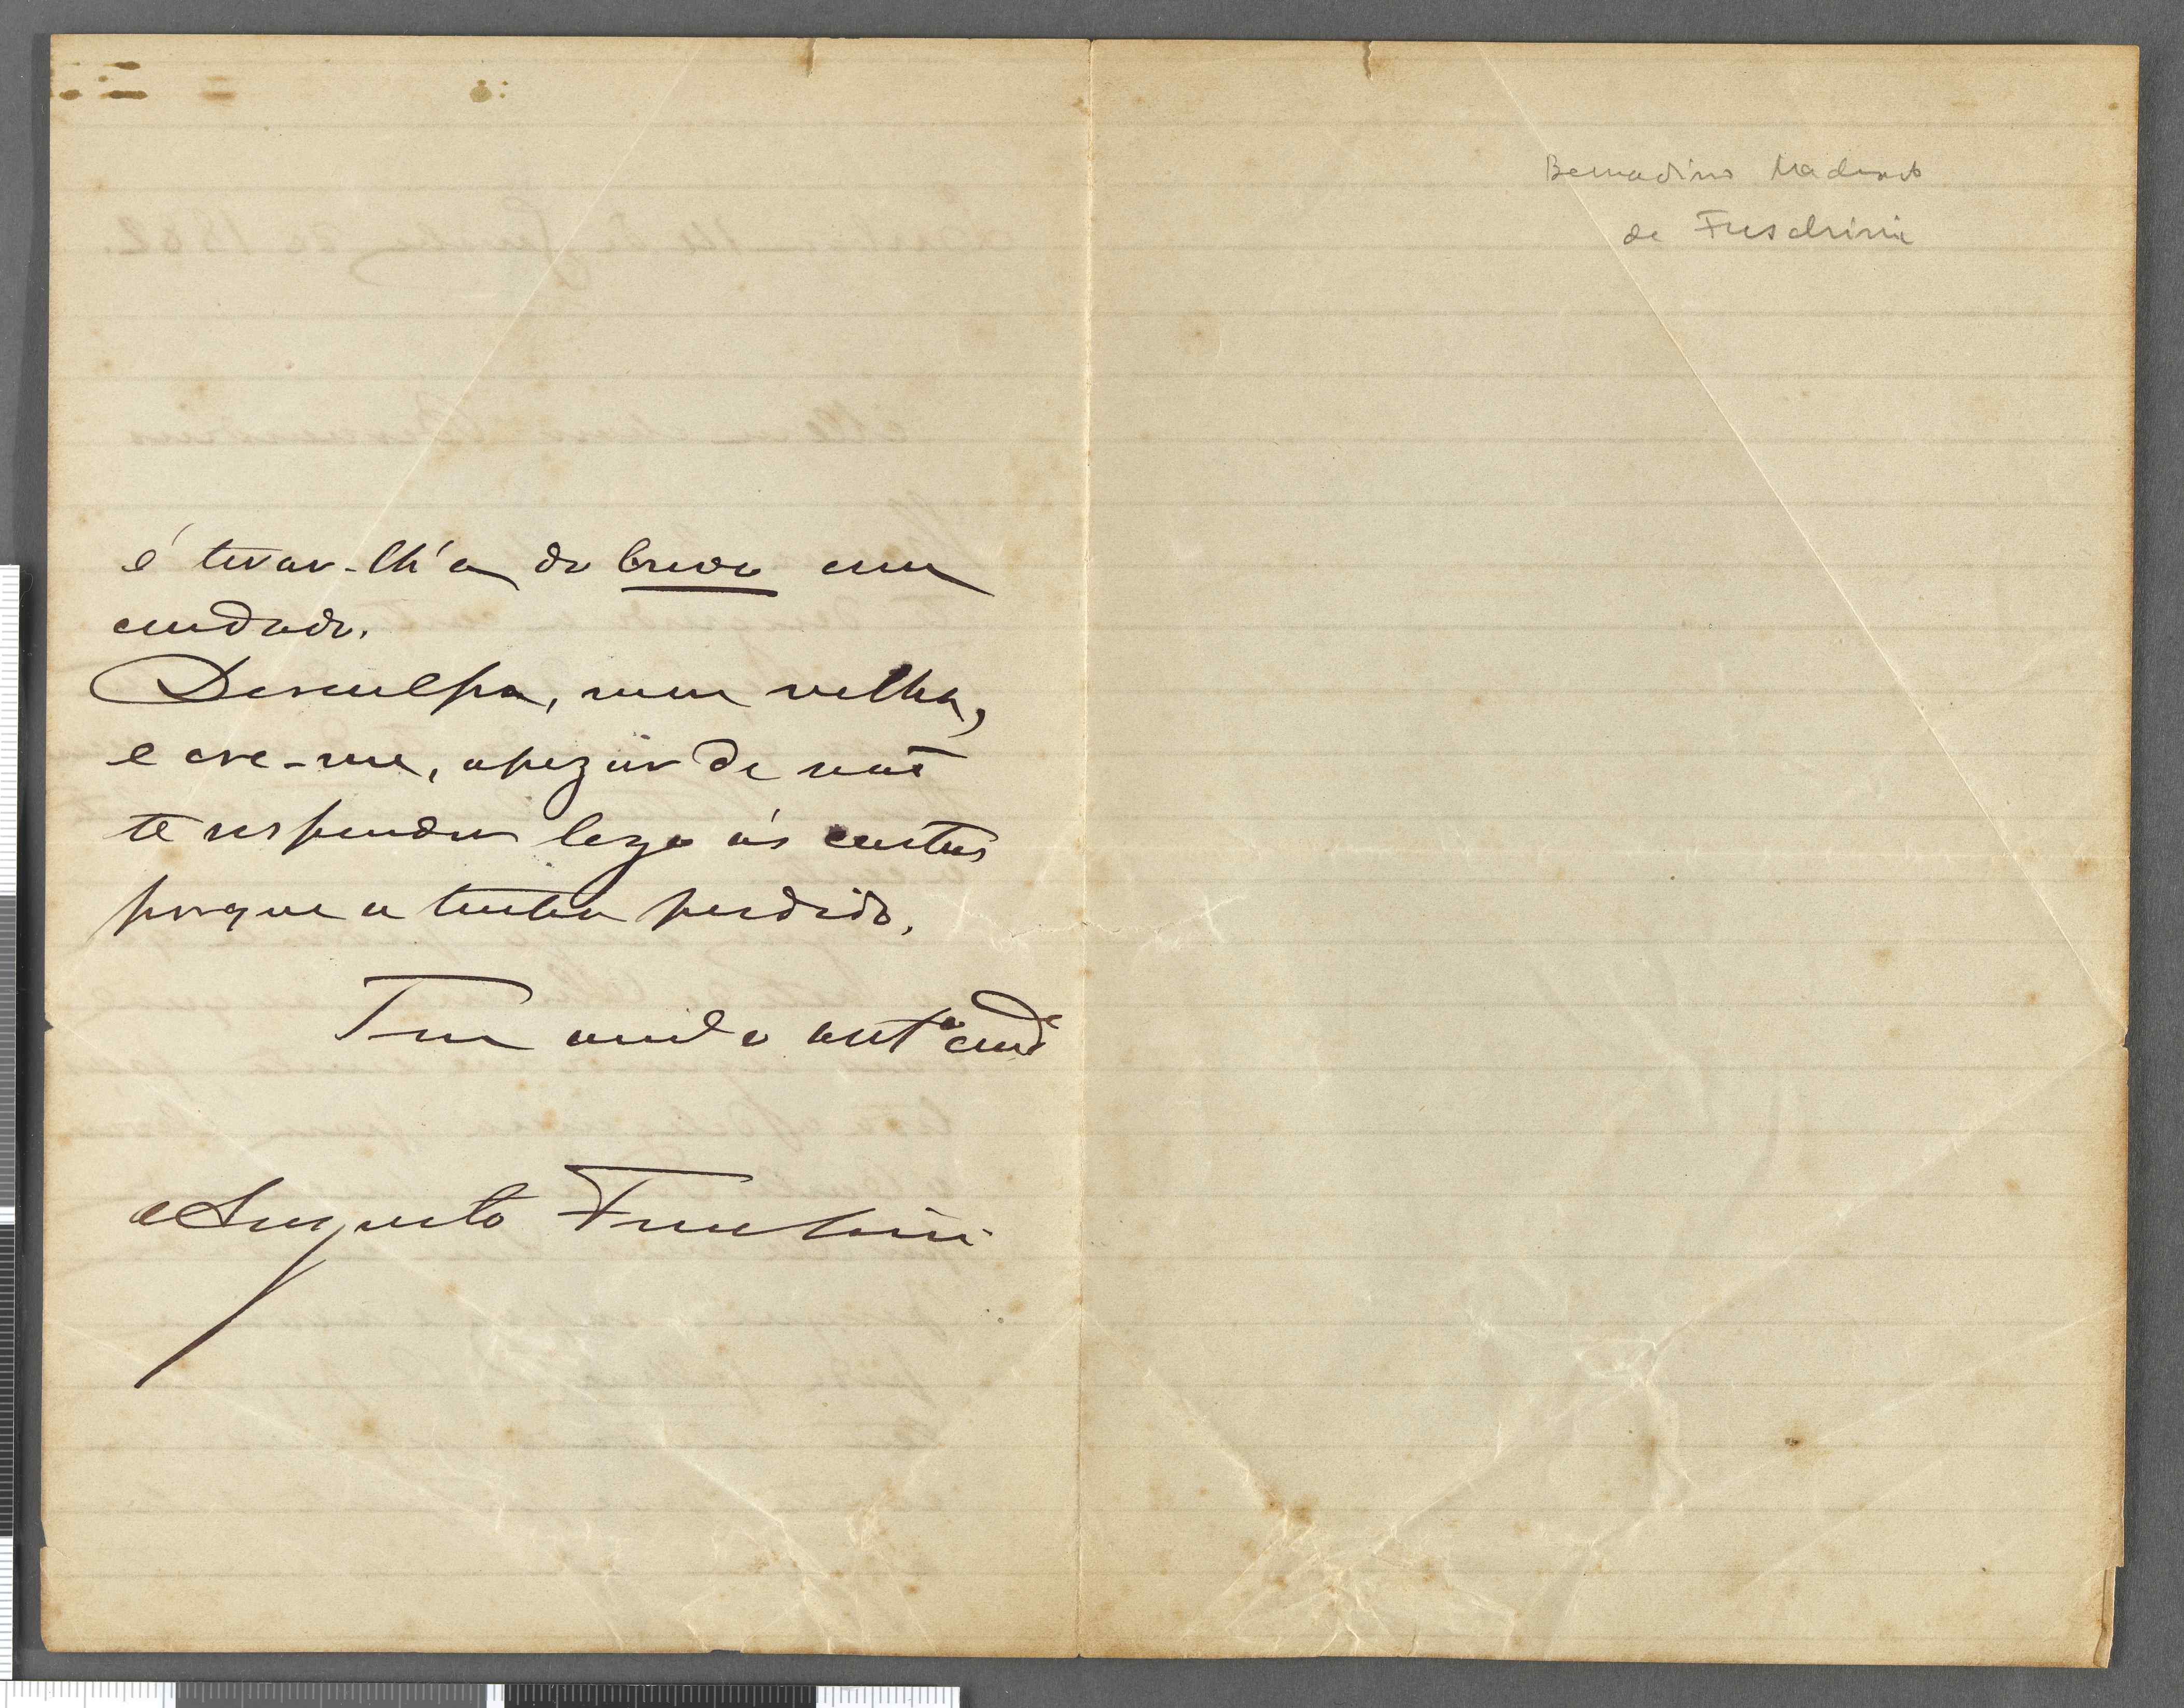 é tirar-lh'a de breve com
cuidado.
Desculpa, meu velho,
e cre-me, apezar de não
te responder logo ás cartas
porque a tinha perdido.
Teu am.º e ant.º
Augusto Fuschini
Bernadino Machado
de Fuschini